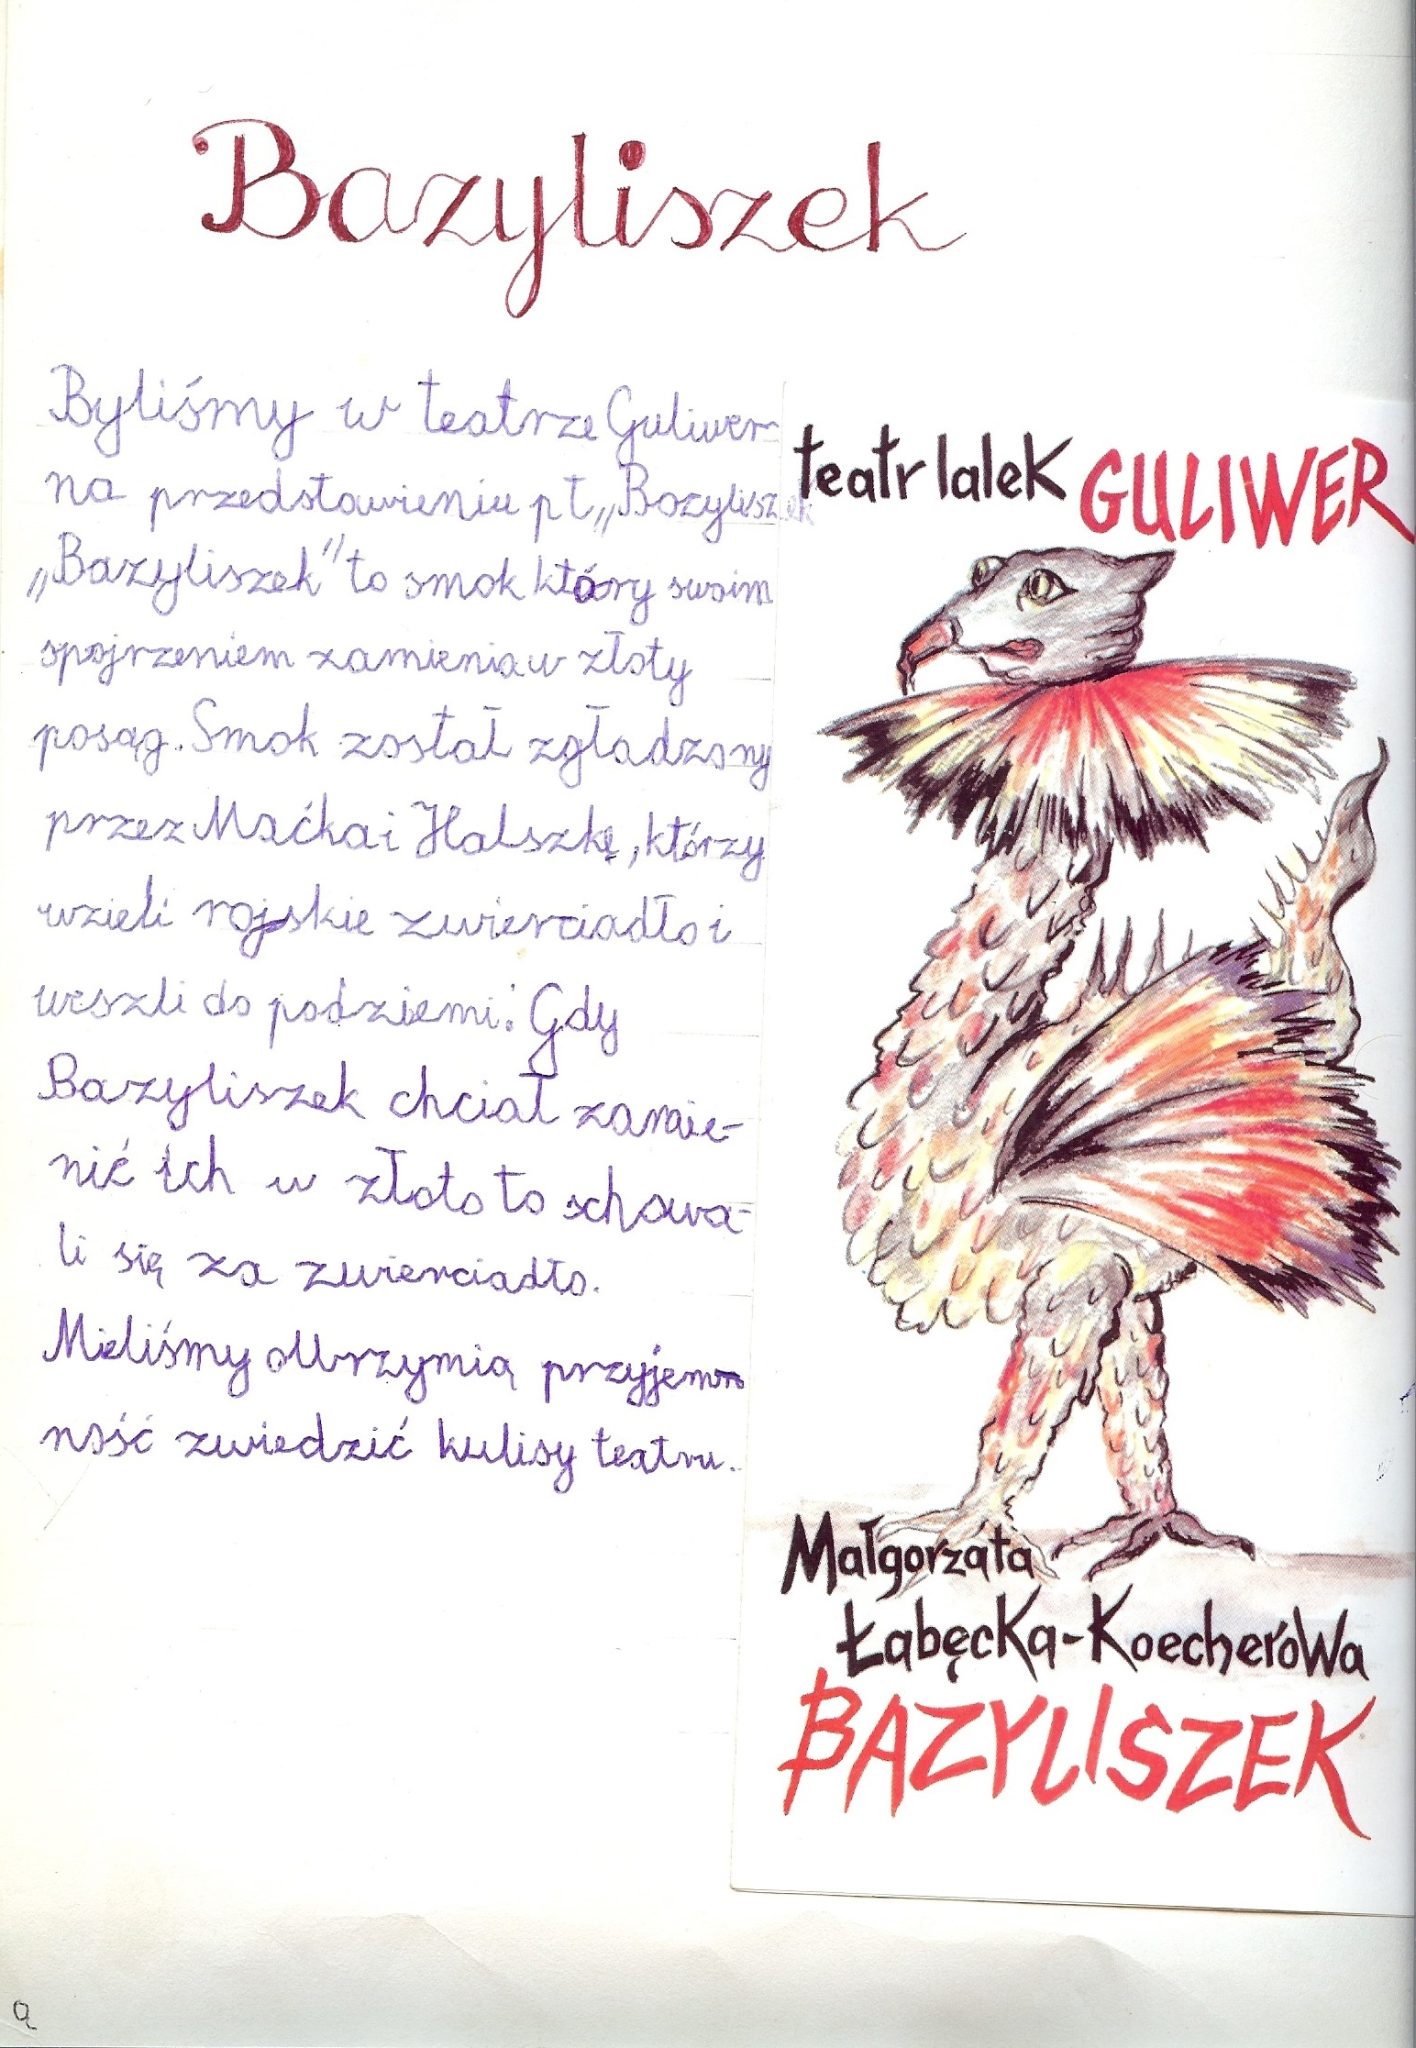 Bazyliszek
Byliśmy w teatrze Guliwer
na przedstawieniu pt „Bazyliszek
„Bazyliszek" to smok który swoim
spojrzeniem zamienia w złoty
posąg. Smok został zgładzony
przez Maćka i Halszkę, którzy
wzieli rajskie zwierciadło i
weszli do podziemi. Gdy
Bazyliszek chciał zamie-
nić ich w złoto to schowa-
li się za zwierciadło.
Mieliśmy olbrzymią przyjem
ność zwiedzić kulisy teatru.
teatr lalek GULIWER
Małgorzata
Łabęcka-Koecherowa
BAZYLISZEK